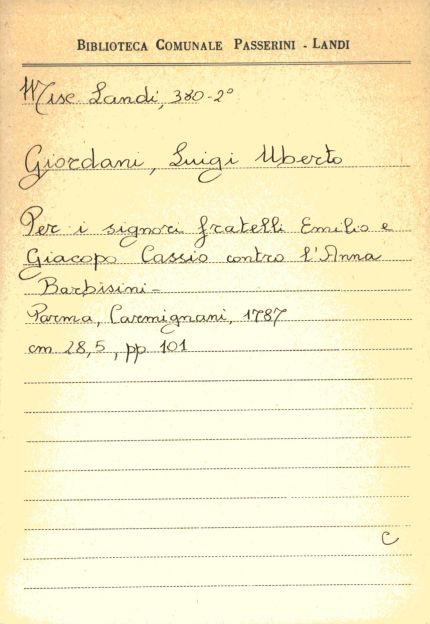 BIBLIOTECA COMUNALE PASSERINI - LANDI
Misc. Landi, 380-2°
Giordani, Luigi Uberto
Per i signori fratelli Emilio e
Giacopo Cassio contro l'Anna
Barbisini-
Parma, Carmignani, 1787
cm 28,5, pp 101
C